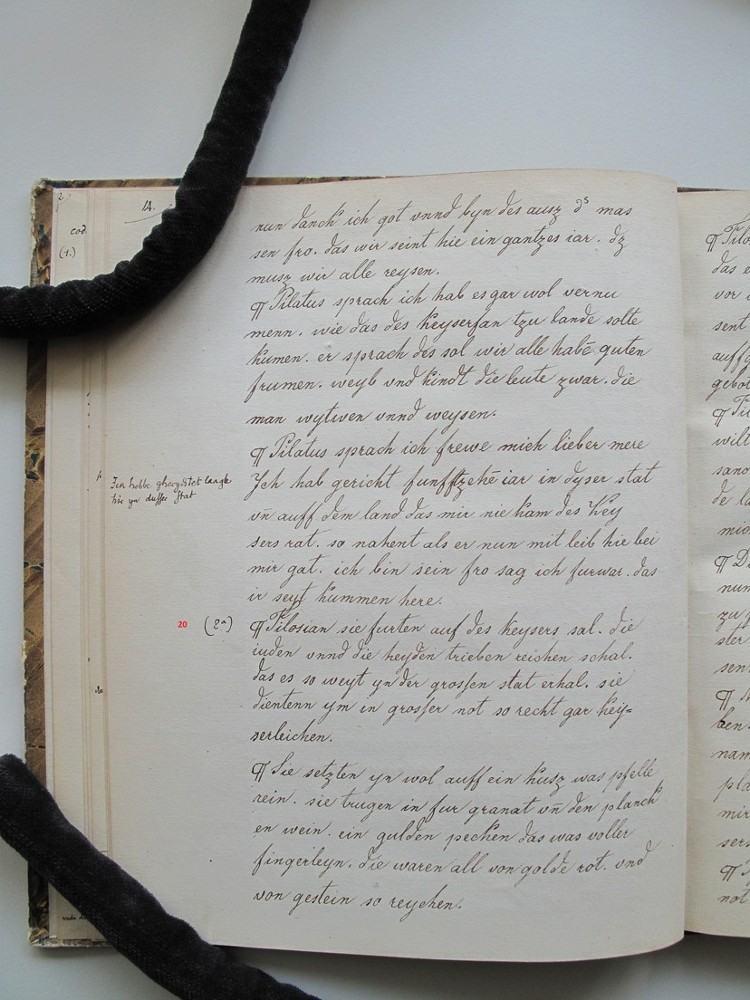 14.
cod.
(1.)
nun danck ich got vnnd byn des ausz ds mas
sen fro. das wir seint hie ein gantzes iar. dz
musz wir alle reysen.
¶ Pilatus sprach ich hab es gar wol vernu
menn. wie das des keysers fan tzu lande solte
kumen. er sprach des sol wir alle habē guten
frumen. weyb vnd kindt die leute zwar. die
man wytwen vnnd weysen.
¶ Pilatus sprach ich frewe mich lieber mere
Jch hab gericht funfftzehē iar in dyser stat
vn̄ auff dem land das mir nie kam des key
sers rat. so nahent als er nun mit leib hie bei
mir gat. ich bin sein fro sag ich furwar. das
ir seyt kummen here.
Jcn hobbe gherychtet langk
hie yn dusser stat
20 (2ª)
¶ Tilosian sie furten auf des keysers sal. die
iuden vnnd die heyden trieben reichen schal.
das es so weyt yn der grossen stat erhal. sie
dientenn ym in grosser not so recht gar key=
serleichen.
¶ Sie setzten yn wol auff ein kusz was pfelle
rein. sie trugen in fur granat vn̄ den planck
en wein. ein gulden pecken das was voller
fingerleyn. die waren all von golde rot. vnd
von gestein so reychen.
¶ Tilo
das e
vor
sent
auff
gebo
¶ Ti
wilt
sand
de la
mic
¶ D
nun
zu
ster
sen
¶
ben.
nam
pla
mir
sers
¶
not